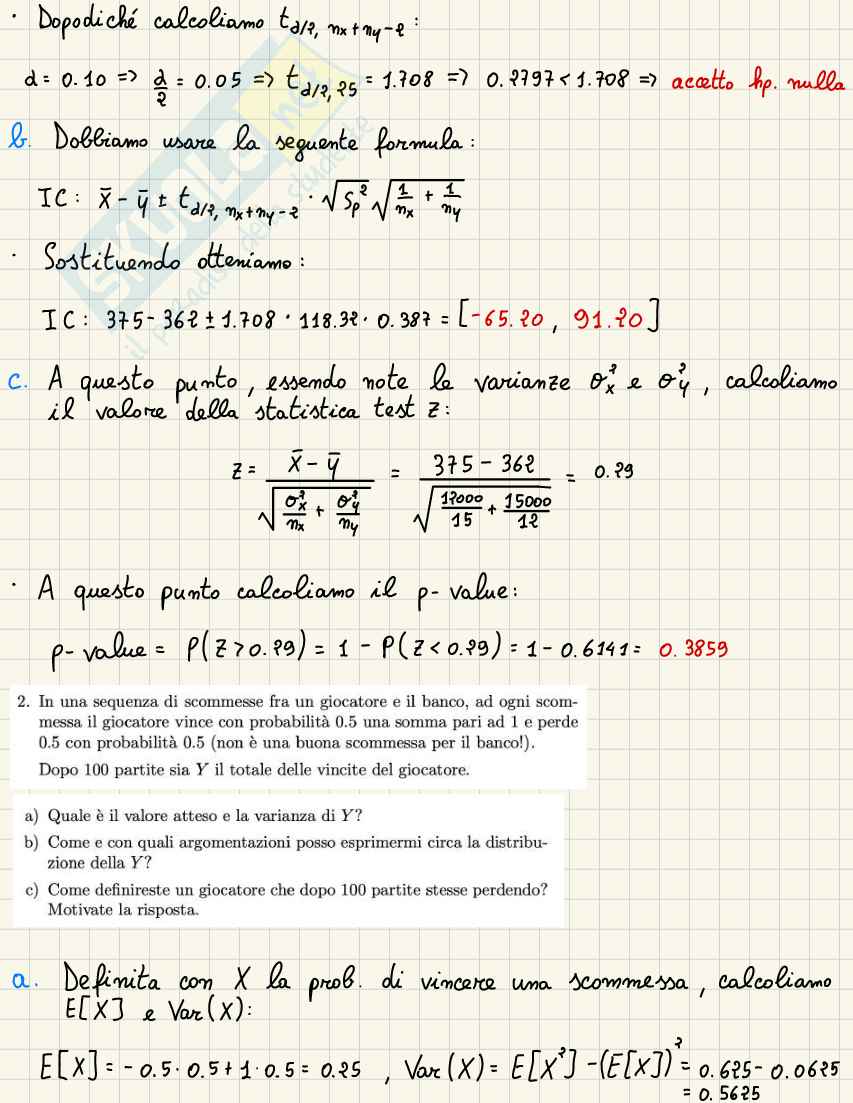 · Dopodiché calcoliamo t_{α/2, nx+ny-2} :
α = 0.10 => α/2 = 0.05 => t_{α/2, 25} = 1.708 => 0.2797 < 1.708 => accetto hp. nulla
b. Dobbiamo usare la seguente formula :
IC : x̄ - ȳ ± t_{α/2, nx+ny-2} · √Sp² √(1/nx + 1/ny)
· Sostituendo otteniamo :
IC : 375 - 362 ± 1.708 · 118.32 · 0.387 = [-65.20 , 91.20]
c. A questo punto, essendo note le varianze σx² e σy², calcoliamo
il valore della statistica test z :
z = (x̄ - ȳ) / √(σx²/nx + σy²/ny) = (375 - 362) / √(12000/15 + 15000/12) = 0.29
· A questo punto calcoliamo il p-value :
p-value = P(Z > 0.29) = 1 - P(Z < 0.29) = 1 - 0.6141 = 0.3859
2. In una sequenza di scommesse fra un giocatore e il banco, ad ogni scom-
messa il giocatore vince con probabilità 0.5 una somma pari ad 1 e perde
0.5 con probabilità 0.5 (non è una buona scommessa per il banco!).
Dopo 100 partite sia Y il totale delle vincite del giocatore.
a) Quale è il valore atteso e la varianza di Y?
b) Come e con quali argomentazioni posso esprimermi circa la distribu-
zione della Y?
c) Come definireste un giocatore che dopo 100 partite stesse perdendo?
Motivate la risposta.
a. Definita con X la prob. di vincere una scommessa, calcoliamo
E[X] e Var(X) :
E[X] = -0.5 · 0.5 + 1 · 0.5 = 0.25 , Var(X) = E[X²] - (E[X])² = 0.625 - 0.0625
= 0.5625
SKUOLA.net
il paradiso dello studente